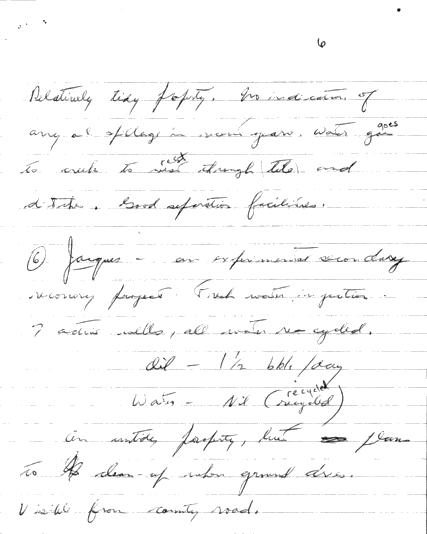 6
Relatively tidy property. No indication of
any oil spillage in recent years. Water goes
goes
to creek to west through tile and
ditch. Good separation facilities.
⑥ Jacques - an experimental secondary
recovery project. Fresh water injection -
7 active wells, all water re-cycled.
Oil - 1 1/2 bbls/day
recycled
Water - Nil (recycled)
An untidy property, but plan
to clean-up when ground dries.
Visible from county road.